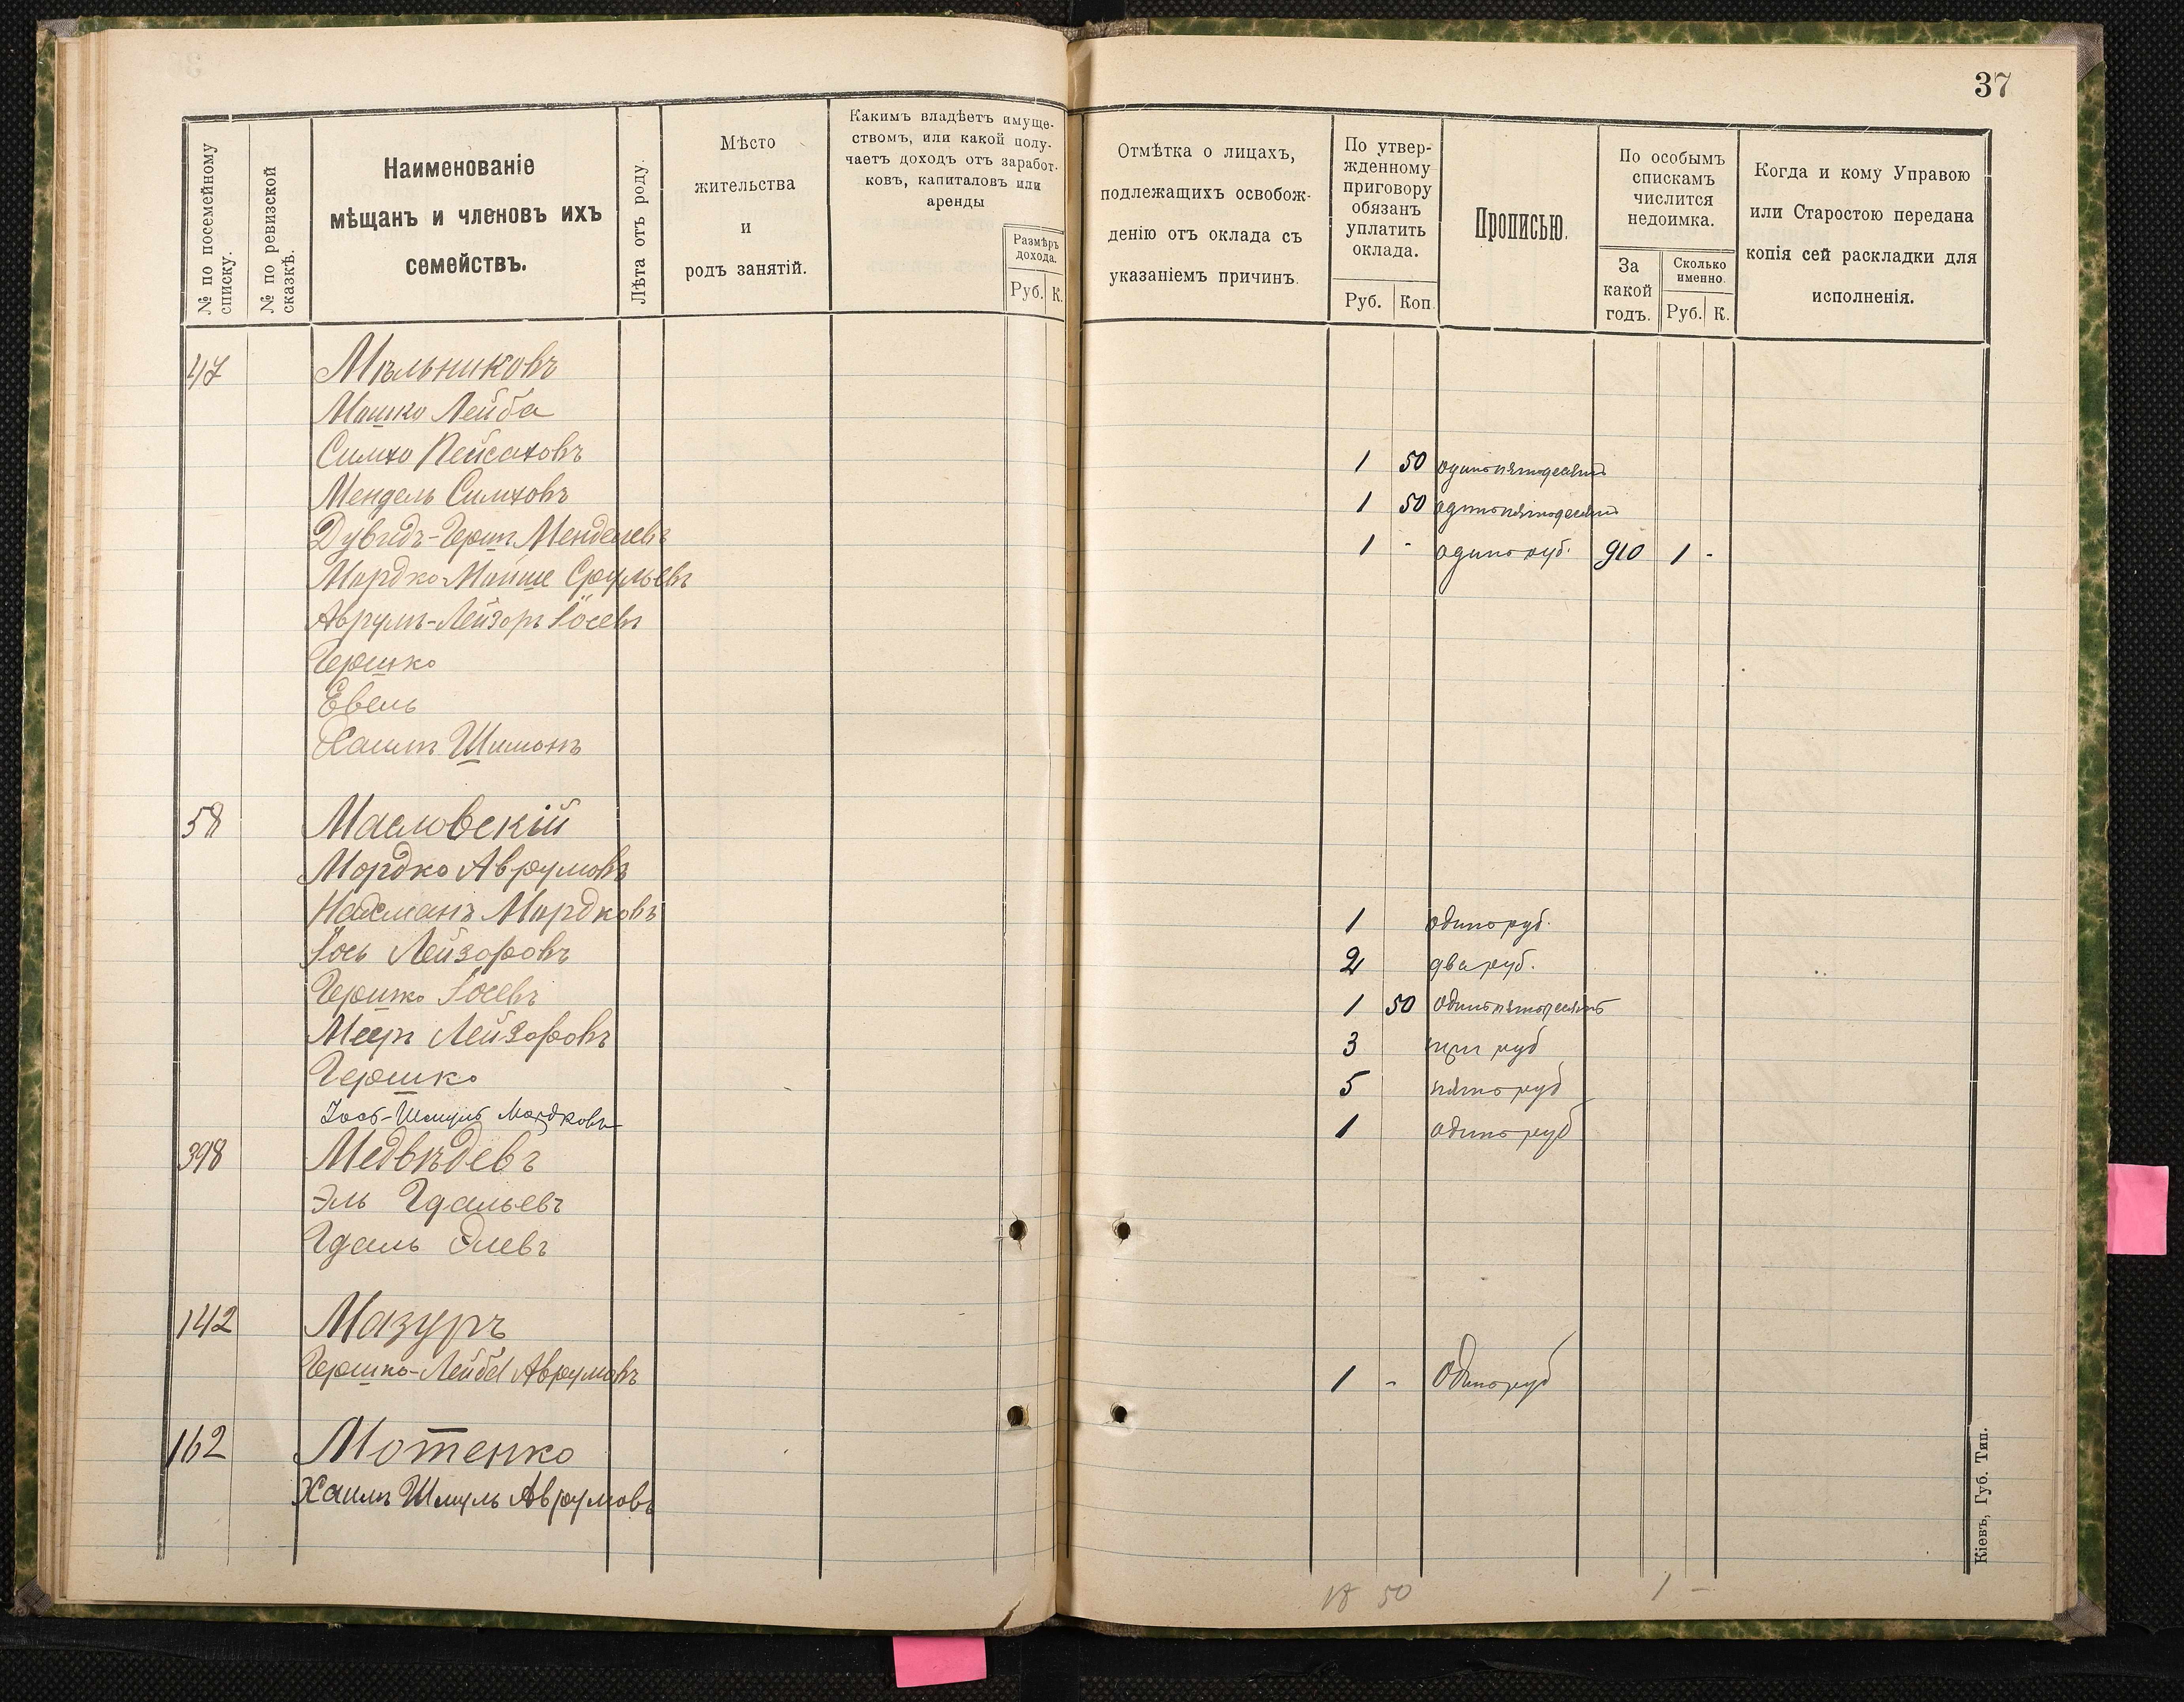 37
№ по посемейному
списку.
№ по ревизской
сказкѣ.
Наименованіе
мѣщанъ и членовъ ихъ
семействъ.
Лѣта отъ роду.
Мѣсто
жительства
и
родъ занятій.
Какимъ владѣетъ имуще-
ствомъ, или какой полу-
чаетъ доходъ отъ заработ-
ковъ, капиталовъ или
аренды
Размѣръ
дохода.
Руб. К.
Отмѣтка о лицахъ,
подлежащихъ освобож-
денію отъ оклада съ
указаніемъ причинъ.
По утвер-
жденному
приговору
обязанъ
уплатить
оклада.
Руб. Коп.
Прописью.
По особымъ
спискамъ
числится
недоимка.
За
какой
годъ.
Сколько
именно.
Руб. К.
Когда и кому Управою
или Старостою передана
копія сей раскладки для
исполненія.
47 Мѣльниковъ
Мошко Лейба
Симхо Пейсаховъ 1 50 одинъ пятьдесятъ
Мендель Симховъ 1 50 одинъ пятьдесятъ
Дувидъ-Герш Менделевъ 1 - одинъ руб. 910 1 -
Мордко-Мойше Срульевъ
Аврумъ-Лейзоръ Іосевъ
Гершко
Евель
Хаимъ Шимонъ
58 Масловскій
Мордко Аврумовъ
Нахманъ Мордковъ 1 одинъ руб.
Іось Лейзоровъ 2 два руб.
Гершко Іосевъ 1 50 одинъ пятьдесятъ
Мееръ Лейзоровъ 3 три руб
Гершко 5 пять руб
Іось-Шмуль Мордковъ 1 одинъ руб
398 Медвѣдевъ
Эль Гдальевъ
Гдаль Элевъ
142 Мазуръ
Гершко-Лейба Аврумовъ 1 - Одинъ руб
162 Мотенко
Хаимъ Шмуль Аврумовъ
50 1 -
Кіевъ, Губ. Тип.